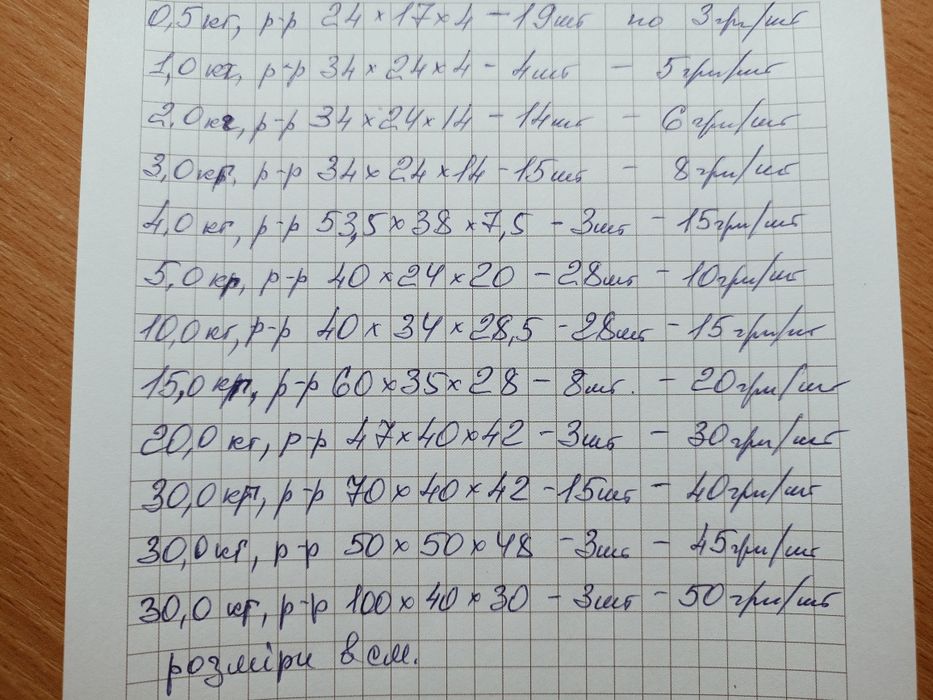 0,5кг, р-р 24×17×4 - 19шт по 3грн/шт
1,0кг, р-р 34×24×4 - 4шт - 5грн/шт
2,0кг, р-р 34×24×14 - 14шт - 6грн/шт
3,0кг, р-р 34×24×14 - 15шт - 8грн/шт
4,0кг, р-р 53,5×38×7,5 - 3шт - 15грн/шт
5,0кг, р-р 40×24×20 - 28шт - 10грн/шт
10,0кг, р-р 40×34×28,5 - 28шт - 15грн/шт
15,0кг, р-р 60×35×28 - 8шт. - 20грн/шт
20,0кг, р-р 47×40×42 - 3шт - 30грн/шт
30,0кг, р-р 70×40×42 - 15шт - 40грн/шт
30,0кг, р-р 50×50×48 - 3шт - 45грн/шт
30,0кг, р-р 100×40×30 - 3шт - 50грн/шт
розміри в см.